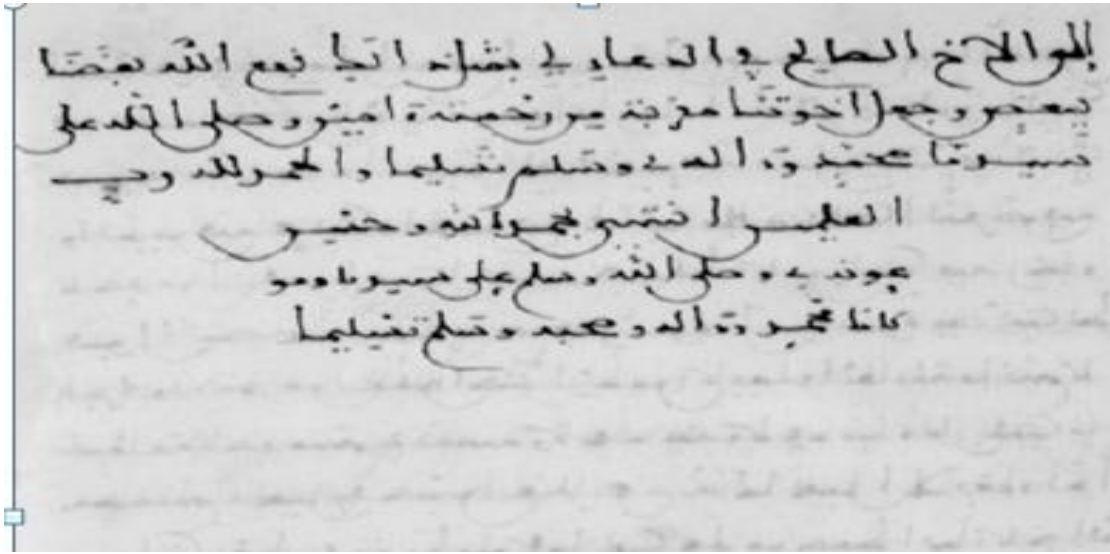 الاخ الصالح في الدعاء لي بمثل نفع الله بعضنا
ببعض وجعل اخوتنا امين وصلى الله على
سيدنا محمد وءاله وسلم تسليما والحمد لله رب
العلمين انتهى بحمد الله وحسن
عونه وصلى الله وسلم على سيدنا ومو
لانا محمد وءاله وصحبه وسلم تسليما